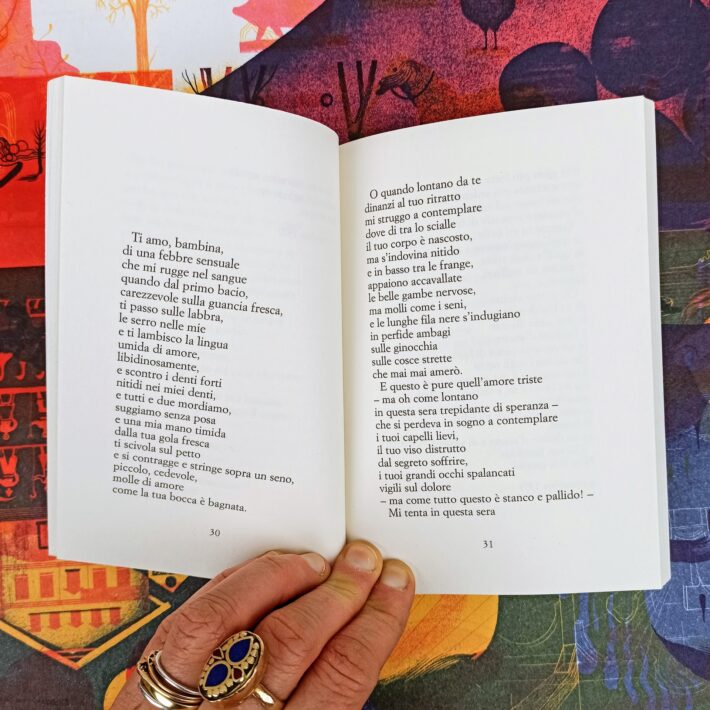 Ti amo, bambina,
di una febbre sensuale
che mi rugge nel sangue
quando dal primo bacio,
carezzevole sulla guancia fresca,
ti passo sulle labbra,
le serro nelle mie
e ti lambisco la lingua
umida di amore,
libidinosamente,
e scontro i denti forti
nitidi nei miei denti,
e tutti e due mordiamo,
suggiamo senza posa
e una mia mano timida
dalla tua gola fresca
ti scivola sul petto
e si contragge e stringe sopra un seno,
piccolo, cedevole,
molle di amore
come la tua bocca è bagnata.
30
O quando lontano da te
dinanzi al tuo ritratto
mi struggo a contemplare
dove di tra lo scialle
il tuo corpo è nascosto,
ma s'indovina nitido
e in basso tra le frange,
appaiono accavallate
le belle gambe nervose,
ma molli come i seni,
e le lunghe fila nere s'indugiano
in perfide ambagi
sulle ginocchia
sulle cosce strette
che mai mai amerò.
E questo è pure quell'amore triste
– ma oh come lontano
in questa sera trepidante di speranza –
che si perdeva in sogno a contemplare
i tuoi capelli lievi,
il tuo viso distrutto
dal segreto soffrire,
i tuoi grandi occhi spalancati
vigili sul dolore
– ma come tutto questo è stanco e pallido! –
Mi tenta in questa sera
31